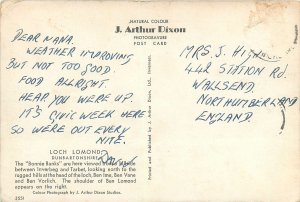 NATURAL COLOUR
J. Arthur Dixon
PHOTOGRAVURE
POST CARD
DEAR NANA.
WEATHER IMPROVING
BUT NOT TOO GOOD.
FOOD ALRIGHT.
HEAR YOU WERE UP.
IT'S CIVIC WEEK HERE
SO WERE OUT EVERY
NITE.
MRS J.
442 STATION RD.
WALLSEND
NORTHUMBERLAND
ENGLAND.
Printed and Published by J. Arthur Dixon, Ltd.,
LOCH LOMOND,
DUNBARTONSHIRE
The "Bonnie Banks" are here viewed
between Inverbeg and Tarbet, looking north to the
rugged hills at the head of the loch, Ben Ime, Ben Vane
and Ben Vorlich. The shoulder of Ben Lomond
appears on the right.
Colour Photograph by J. Arthur Dixon Studios.